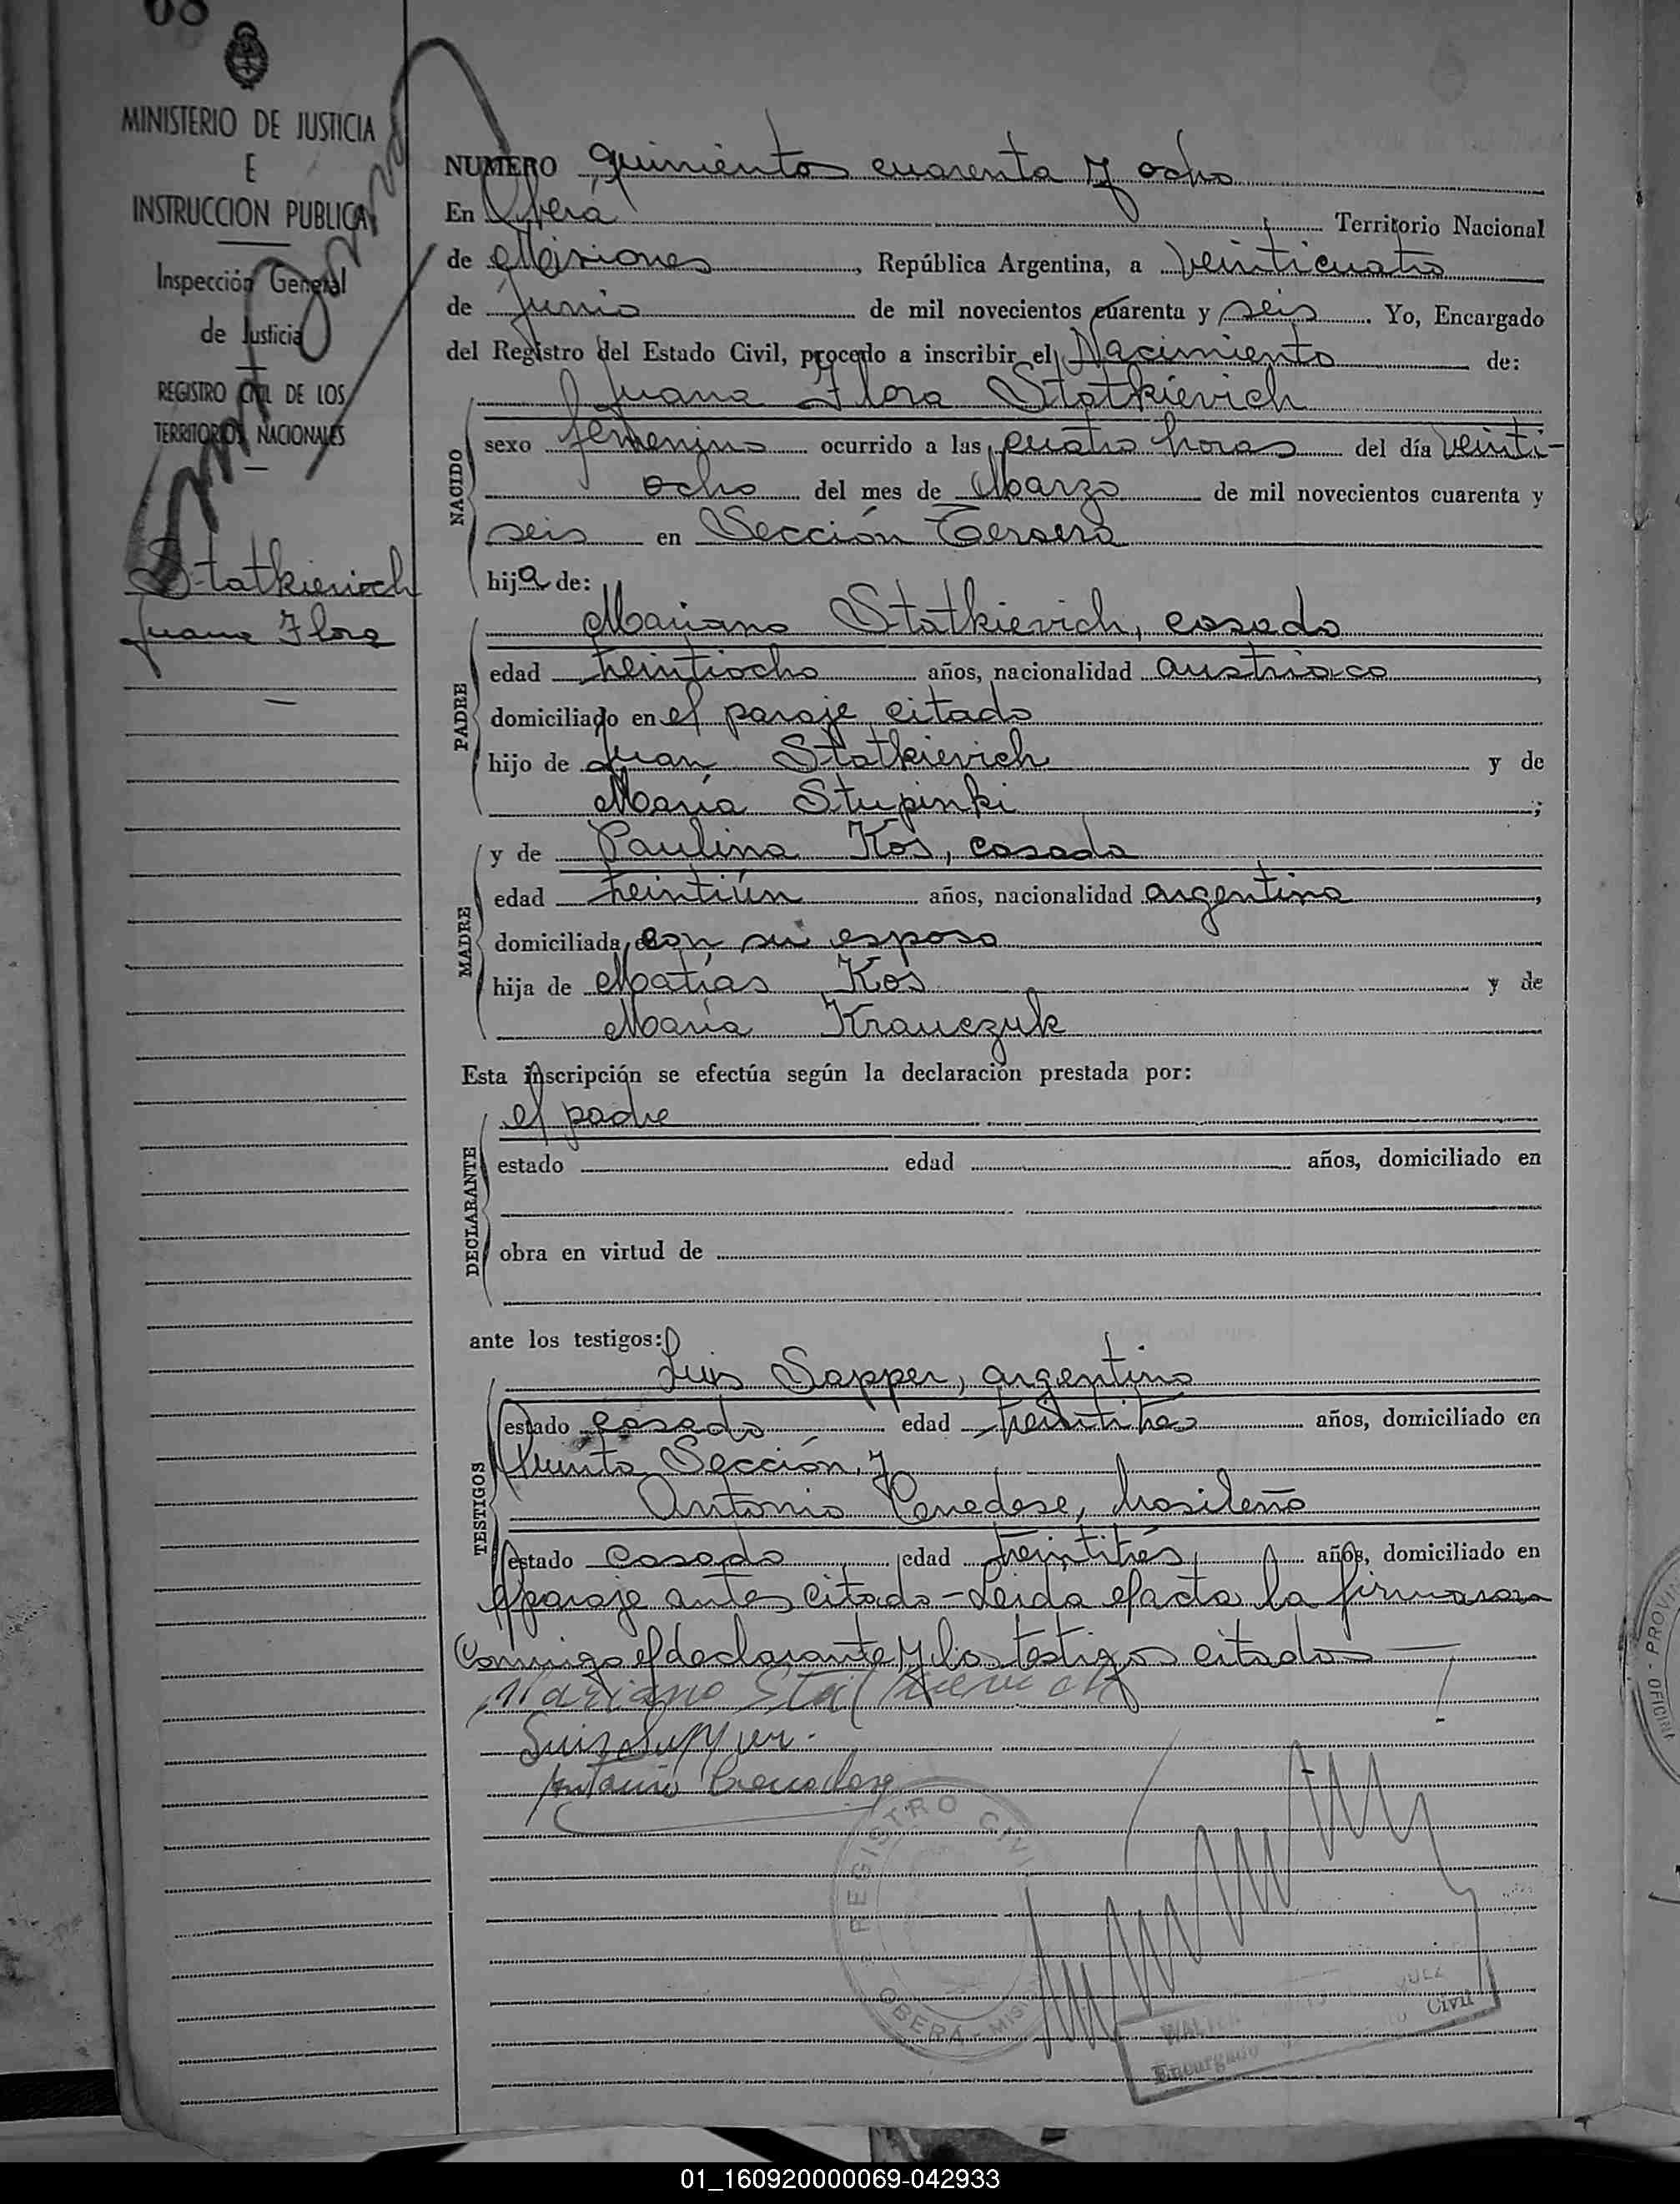 68
MINISTERIO DE JUSTICIA
E
INSTRUCCION PUBLICA
Inspección General
de Justicia
REGISTRO CIVIL DE LOS
TERRITORIOS NACIONALES
Statkievich
Juana Flora
NUMERO quinientos cuarenta y ocho
En Oberá Territorio Nacional
de Misiones, República Argentina, a veinticuatro
de junio de mil novecientos cuarenta y seis. Yo, Encargado
del Registro del Estado Civil, procedo a inscribir el Nacimiento de:
Juana Flora Statkievich
NACIDO
sexo femenino ocurrido a las cuatro horas del día veinti-
ocho del mes de Marzo de mil novecientos cuarenta y
seis en Sección Tercera
hija de:
Mariano Statkievich, casado
PADRE
edad treintiocho años, nacionalidad austriaco,
domiciliado en el paraje citado
hijo de Juan Statkievich y de
María Stupinki;
y de Paulina Kos, casada
MADRE
edad treintiún años, nacionalidad argentina,
domiciliada con su esposo
hija de Matías Kos y de
María Krauczuk
Esta inscripción se efectúa según la declaración prestada por:
el padre
DECLARANTE
estado edad años, domiciliado en
obra en virtud de
ante los testigos:
Luis Sapper, argentino
TESTIGOS
estado casado edad treintitres años, domiciliado en
Quinta Sección, y
Antonio Penedese, brasileño
estado casado edad treintitrés años, domiciliado en
el paraje antes citado - Leida el acta la firmaron
conmigo el declarante y los testigos citados
Mariano Statkievich
Luis Sapper.
Antonio
REGISTRO CIVIL
OBERA - MISIONES
WALTER
Encargado Civil
PROVI
OFICINA
01_160920000069-042933